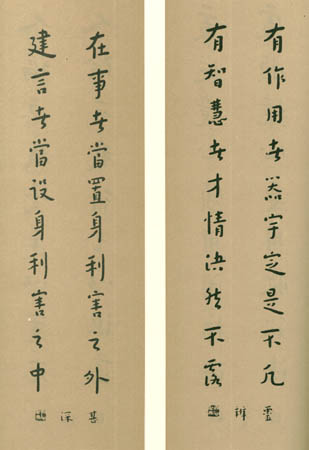 有作用者器宇定是不凡
有智慧者才情決然不露
辨
在事者當置身利害之外
建言者當設身利害之中
甚深